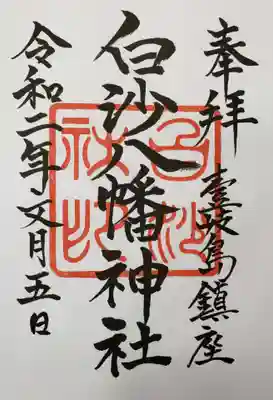 奉拝　壹岐島鎮座
白沙八幡神社
令和二年文月五日